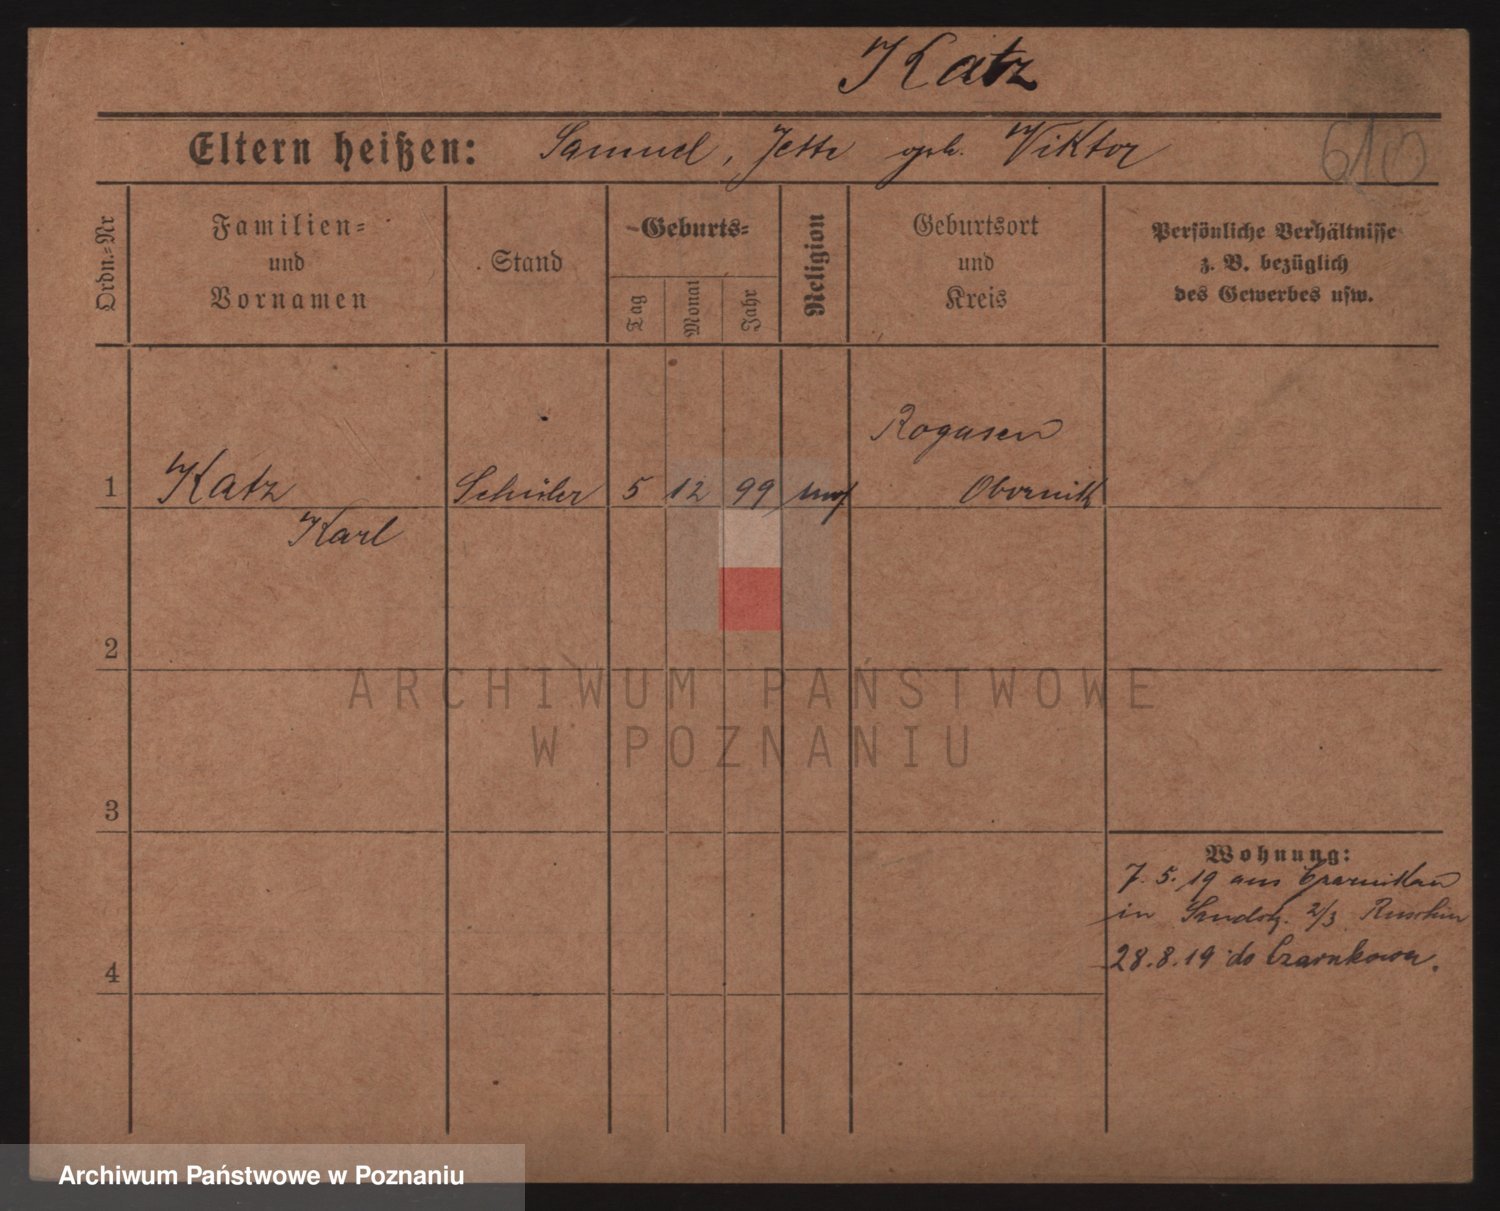 Katz
Eltern heißen: Samuel, Jette geb. Viktor
610
Ordn.-Nr
Familien-
und
Vornamen
Stand
Geburts-
Tag
Monat
Jahr
Religion
Geburtsort
und
Kreis
Persönliche Verhältnisse
z. B. bezüglich
des Gewerbes usw.
Rogasen
1 Katz Schüler 5 12 99 Obornik
Karl
2
ARCHIWUM PAŃSTWOWE
W POZNANIU
3
Wohnung:
7.5.19 aus Czarnikau
in 2/3
4
28.8.19 do Czarnkowa.
Archiwum Państwowe w Poznaniu